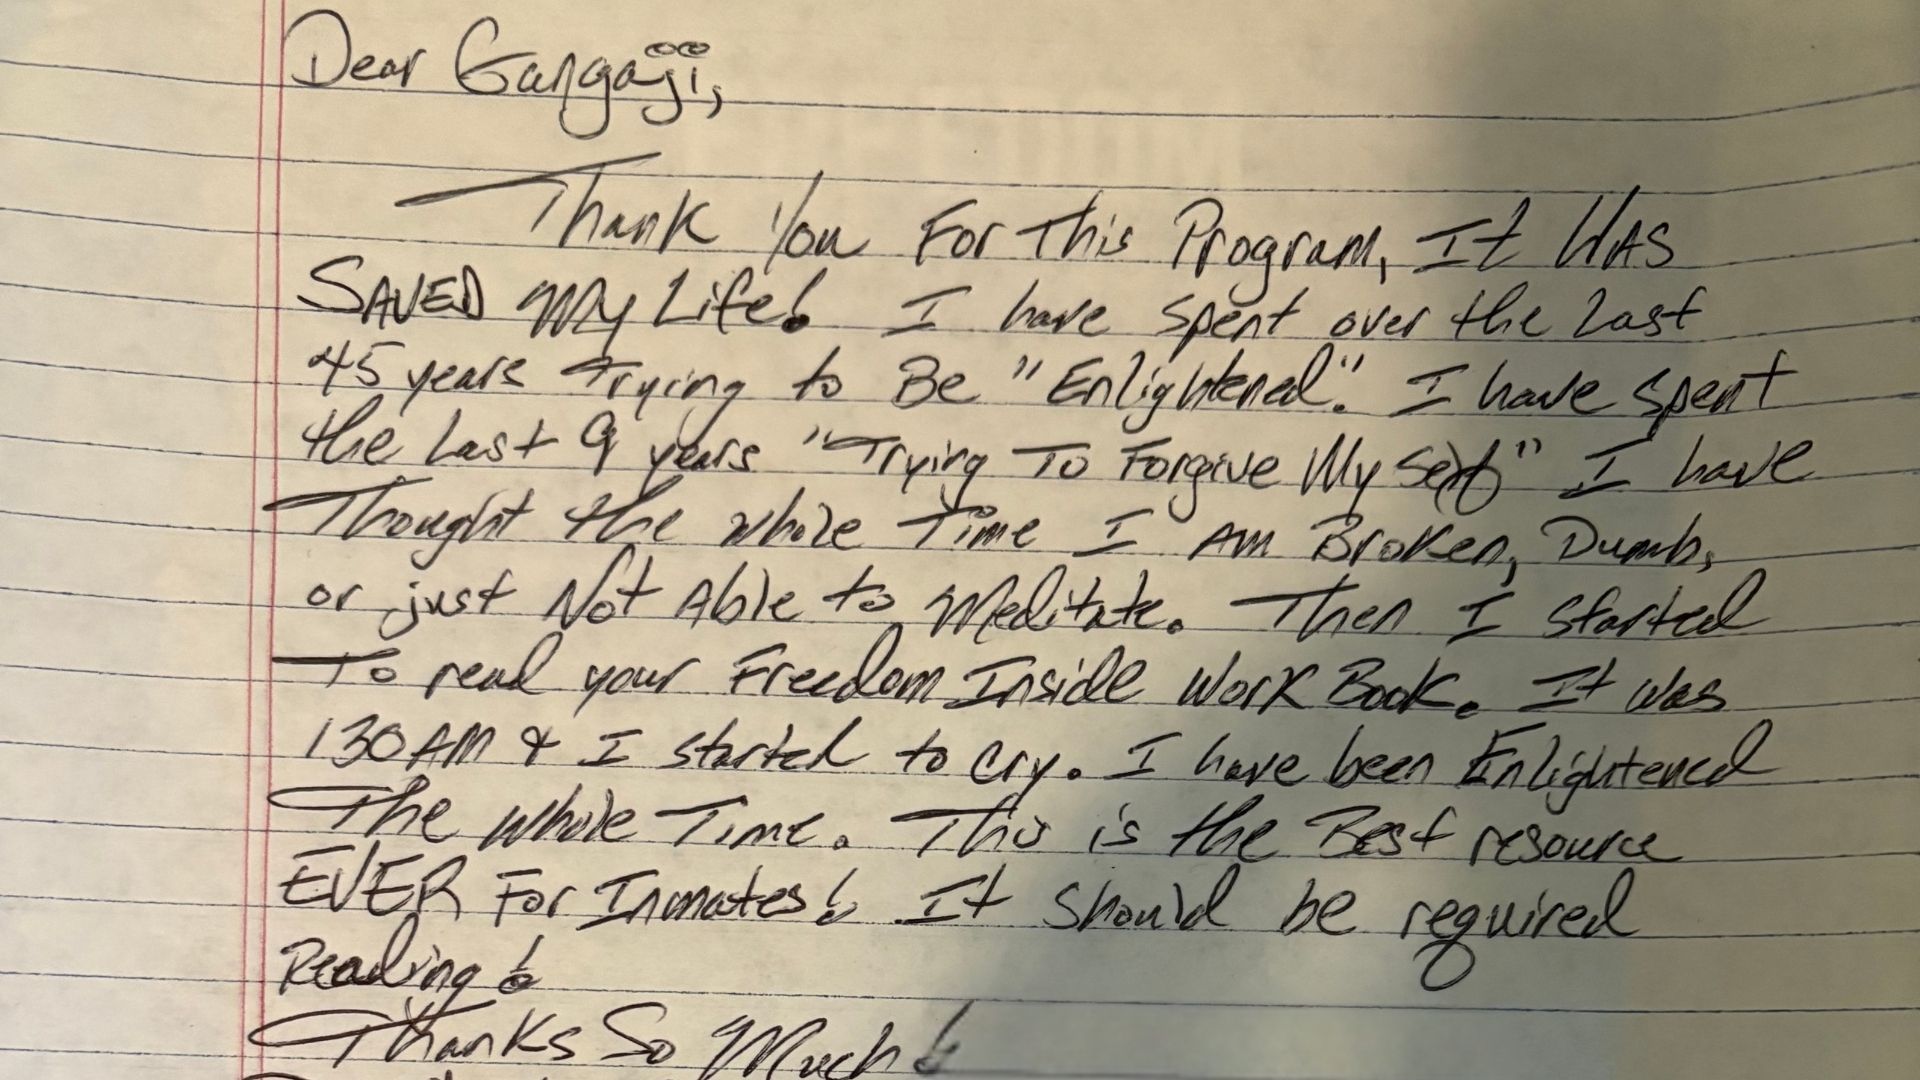 Dear Gangaji,
Thank You For This Program, It WAS
SAVED My Life! I have spent over the last
45 years Trying to Be "Enlightened". I have spent
the last 9 years "Trying To Forgive My Self" I have
Thought the whole Time I AM Broken, Dumb,
or just Not Able to Meditate. Then I started
To read your Freedom Inside Work Book. It was
130 AM & I started to cry. I have been Enlightened
The whole Time. This is the Best resource
EVER For Inmates! It should be required
Reading!
Thanks So Much!